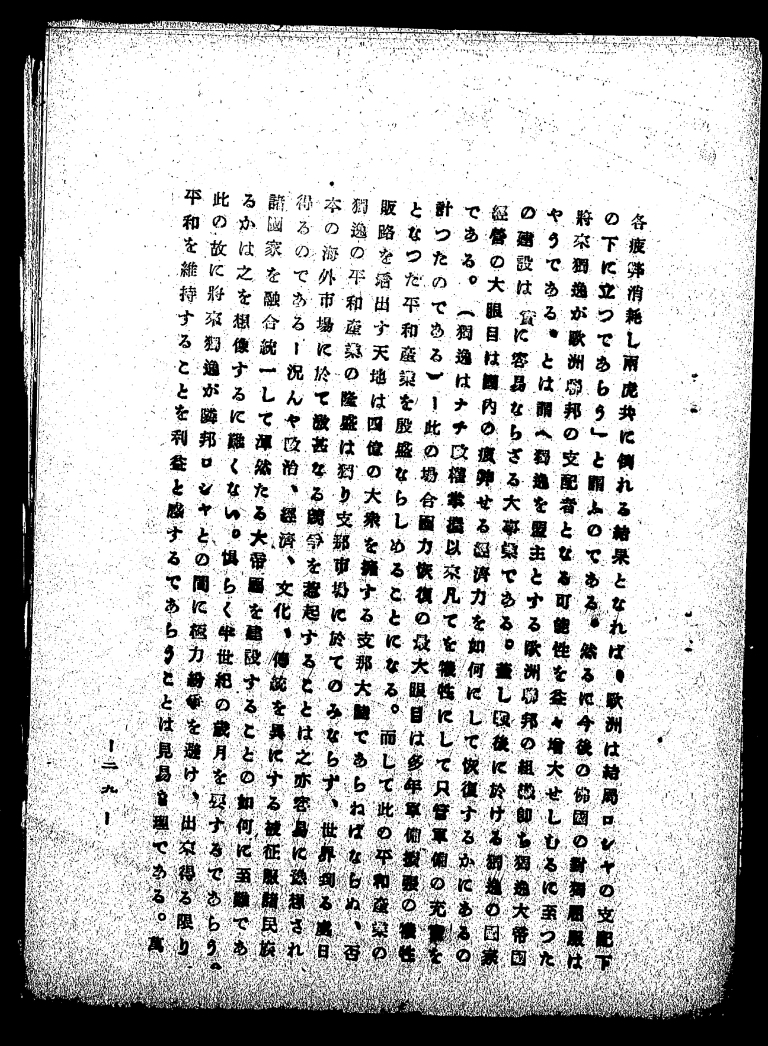 各疲弊消耗し兩虎共に倒れる結果となれば、歐洲は結局ロシヤの支配下
の下に立つであらう」と謂ふのである。然るに今後の佛國の對獨屈服は
將來獨逸が歐洲聯邦の支配者となる可能性を益々增大せしむるに至つた
やうである。とは謂へ獨逸を盟主とする歐洲聯邦の組織卽ち獨逸大帝國
の建設は實に容易ならざる大事業である。蓋し戰後に於ける獨逸の國家
經營の大眼目は國內の疲弊せる經濟力を如何にして恢復するかにあるの
である。(獨逸はナチ政權掌握以來凡てを犧牲にして只管軍備の充實を
計つたのである)ー此の場合國力恢復の最大眼目は多年軍備擴張の犧牲
となつた平和產業を殷盛ならしめることになる。而して此の平和產業の
販路を見出す天地は四億の大衆を擁する支那大陸であらねばならぬ、否
獨逸の平和產業の隆盛は獨り支那市場に於てのみならず、世界到る處日
本の海外市場に於て激甚なる競爭を惹起することは之亦容易に想像され
得るのであるー況んや政治、經濟、文化、傳統を異にする被征服諸民族
諸國家を融合統一して渾然たる大帝國を建設することの如何に至難であ
るかは之を想像するに難くない。恐らく半世紀の歲月を要するであらう。
此の故に將來獨逸が隣邦ロシヤとの間に極力紛爭を避け、出來得る限り
平和を維持することを利益と感ずるであらうことは見易き理である。萬
ー二九ー